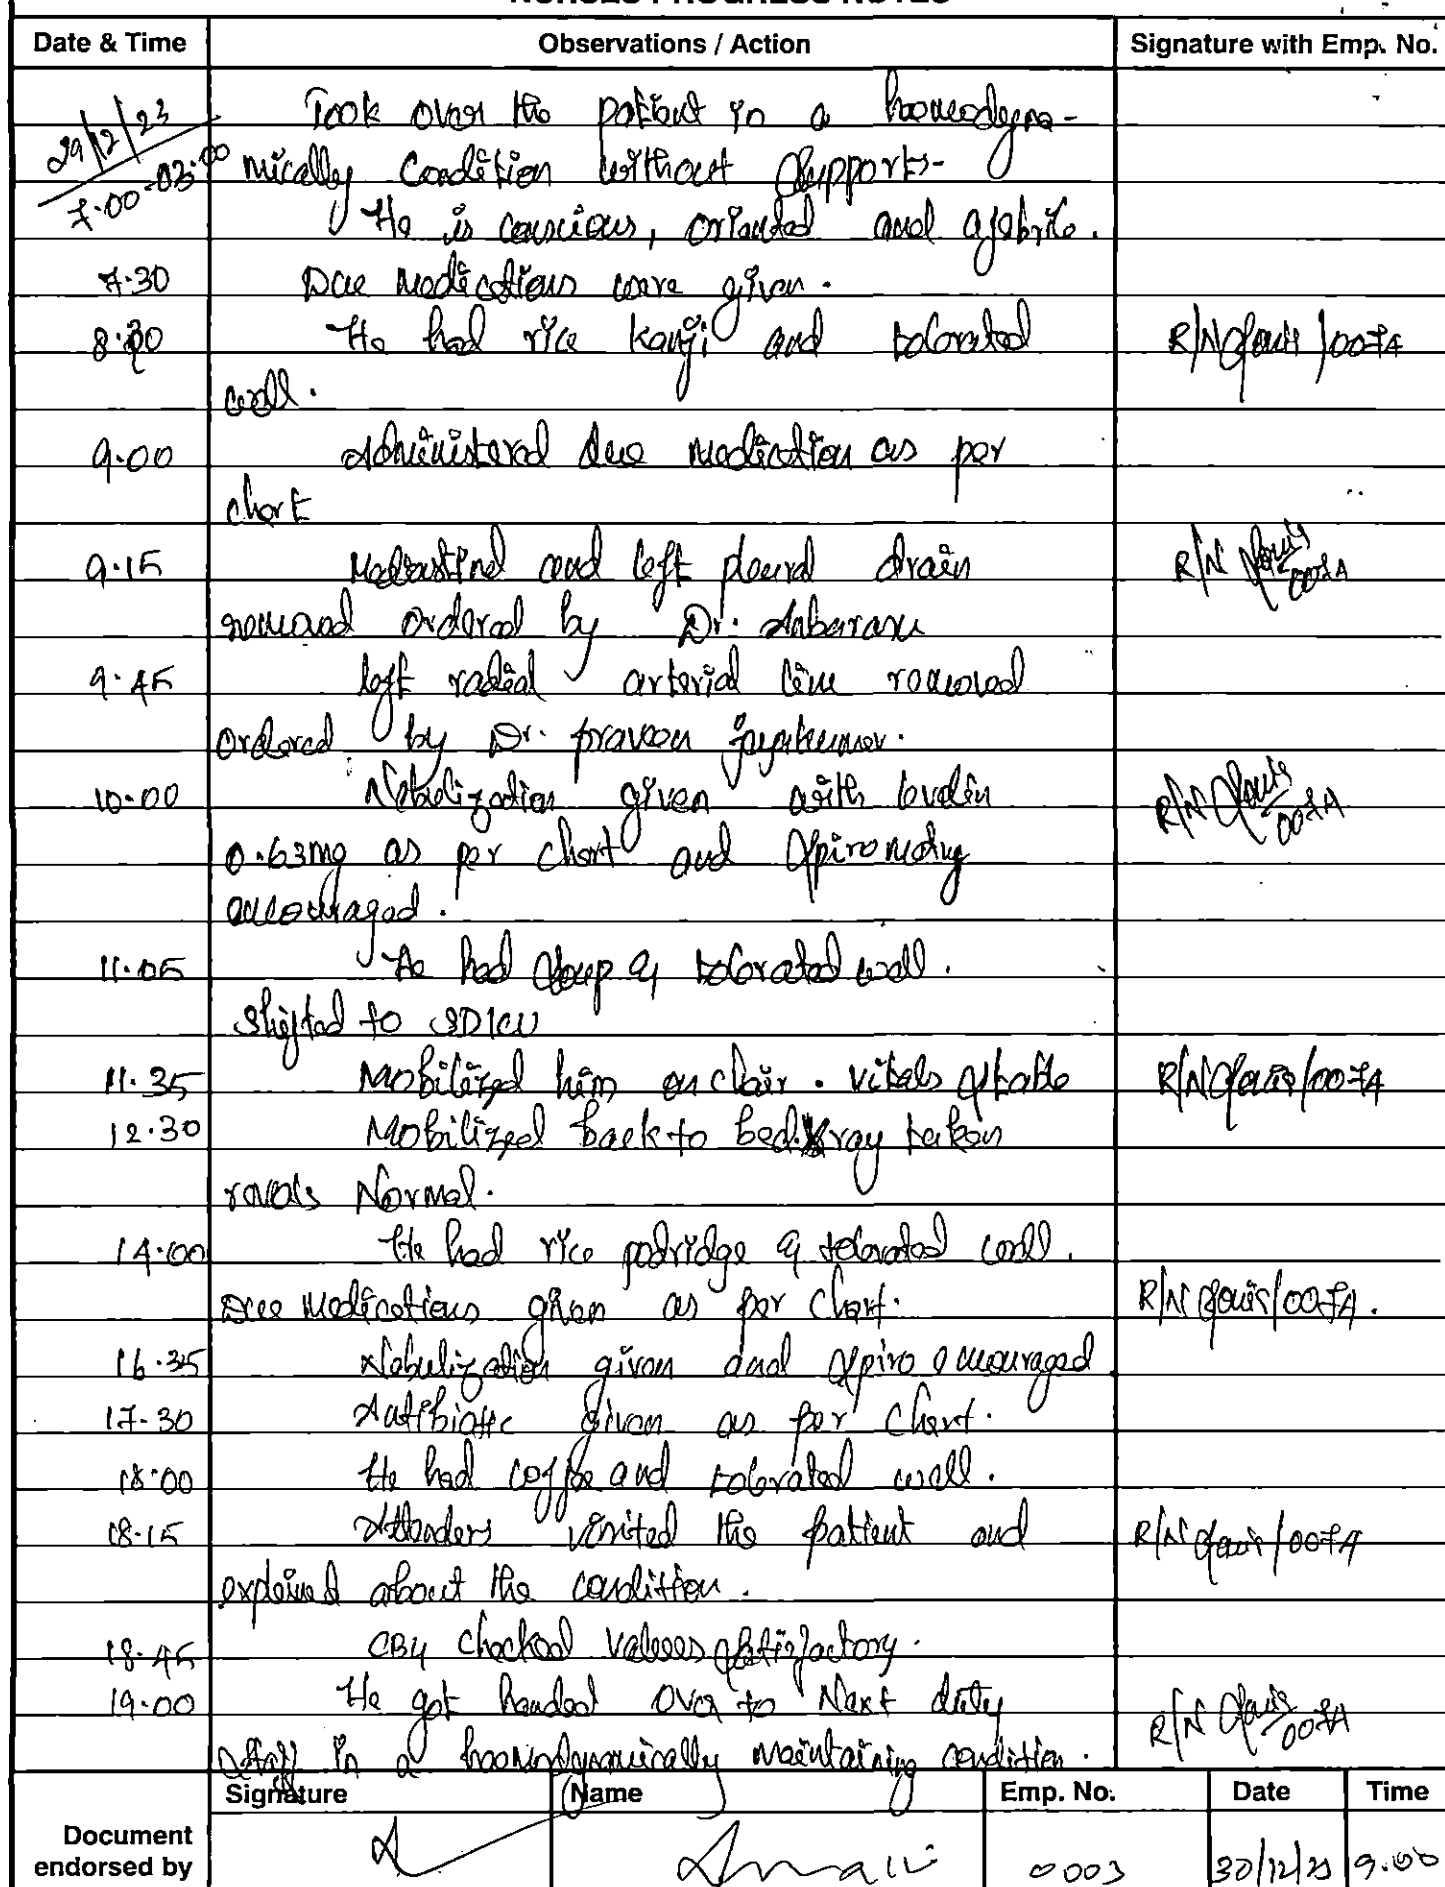 NURSES PROGRESS NOTES
Date & Time Observations / Action Signature with Emp. No.
29/12/23 Took over the patient in a
7:00 mically Condition without supports-
He is conscious, oriented and afebrile.
7.30 Due medications were given.
8.30 He had rice kanji and tolerated R/N /0074
well.
9.00 Administered due medication as per
chart
9.15 Mediastinal and left pleural drain R/N 0074
removed ordered by Dr. Sabaram
9.45 left radial arterial line removed
ordered by Dr. praveen jayakumar.
10.00 Nebulization given with levolin R/N 0074
0.63mg as per chart and spirometry
encouraged.
11.05 He had soup & tolerated well.
Shifted to SDICU
11.35 Mobilized him on chair. vitals stable R/N /0074
12.30 Mobilized back to bed. Xray taken
reveals Normal.
14.00 He had rice podridge & tolerated well.
Due medications given as per chart. R/N /0074.
16.35 Nebulization given and spiro encouraged
17.30 Antibiotic given as per chart.
18.00 He had coffee and tolerated well.
18.15 Attenders visited the patient and R/N /0074
explained about the condition.
18.45 checked values satisfactory.
19.00 He got handed over to Next duty R/N 0074
staff in a maintaining condition.
Signature Name Emp. No. Date Time
Document
endorsed by 0003 30/12/23 9.00